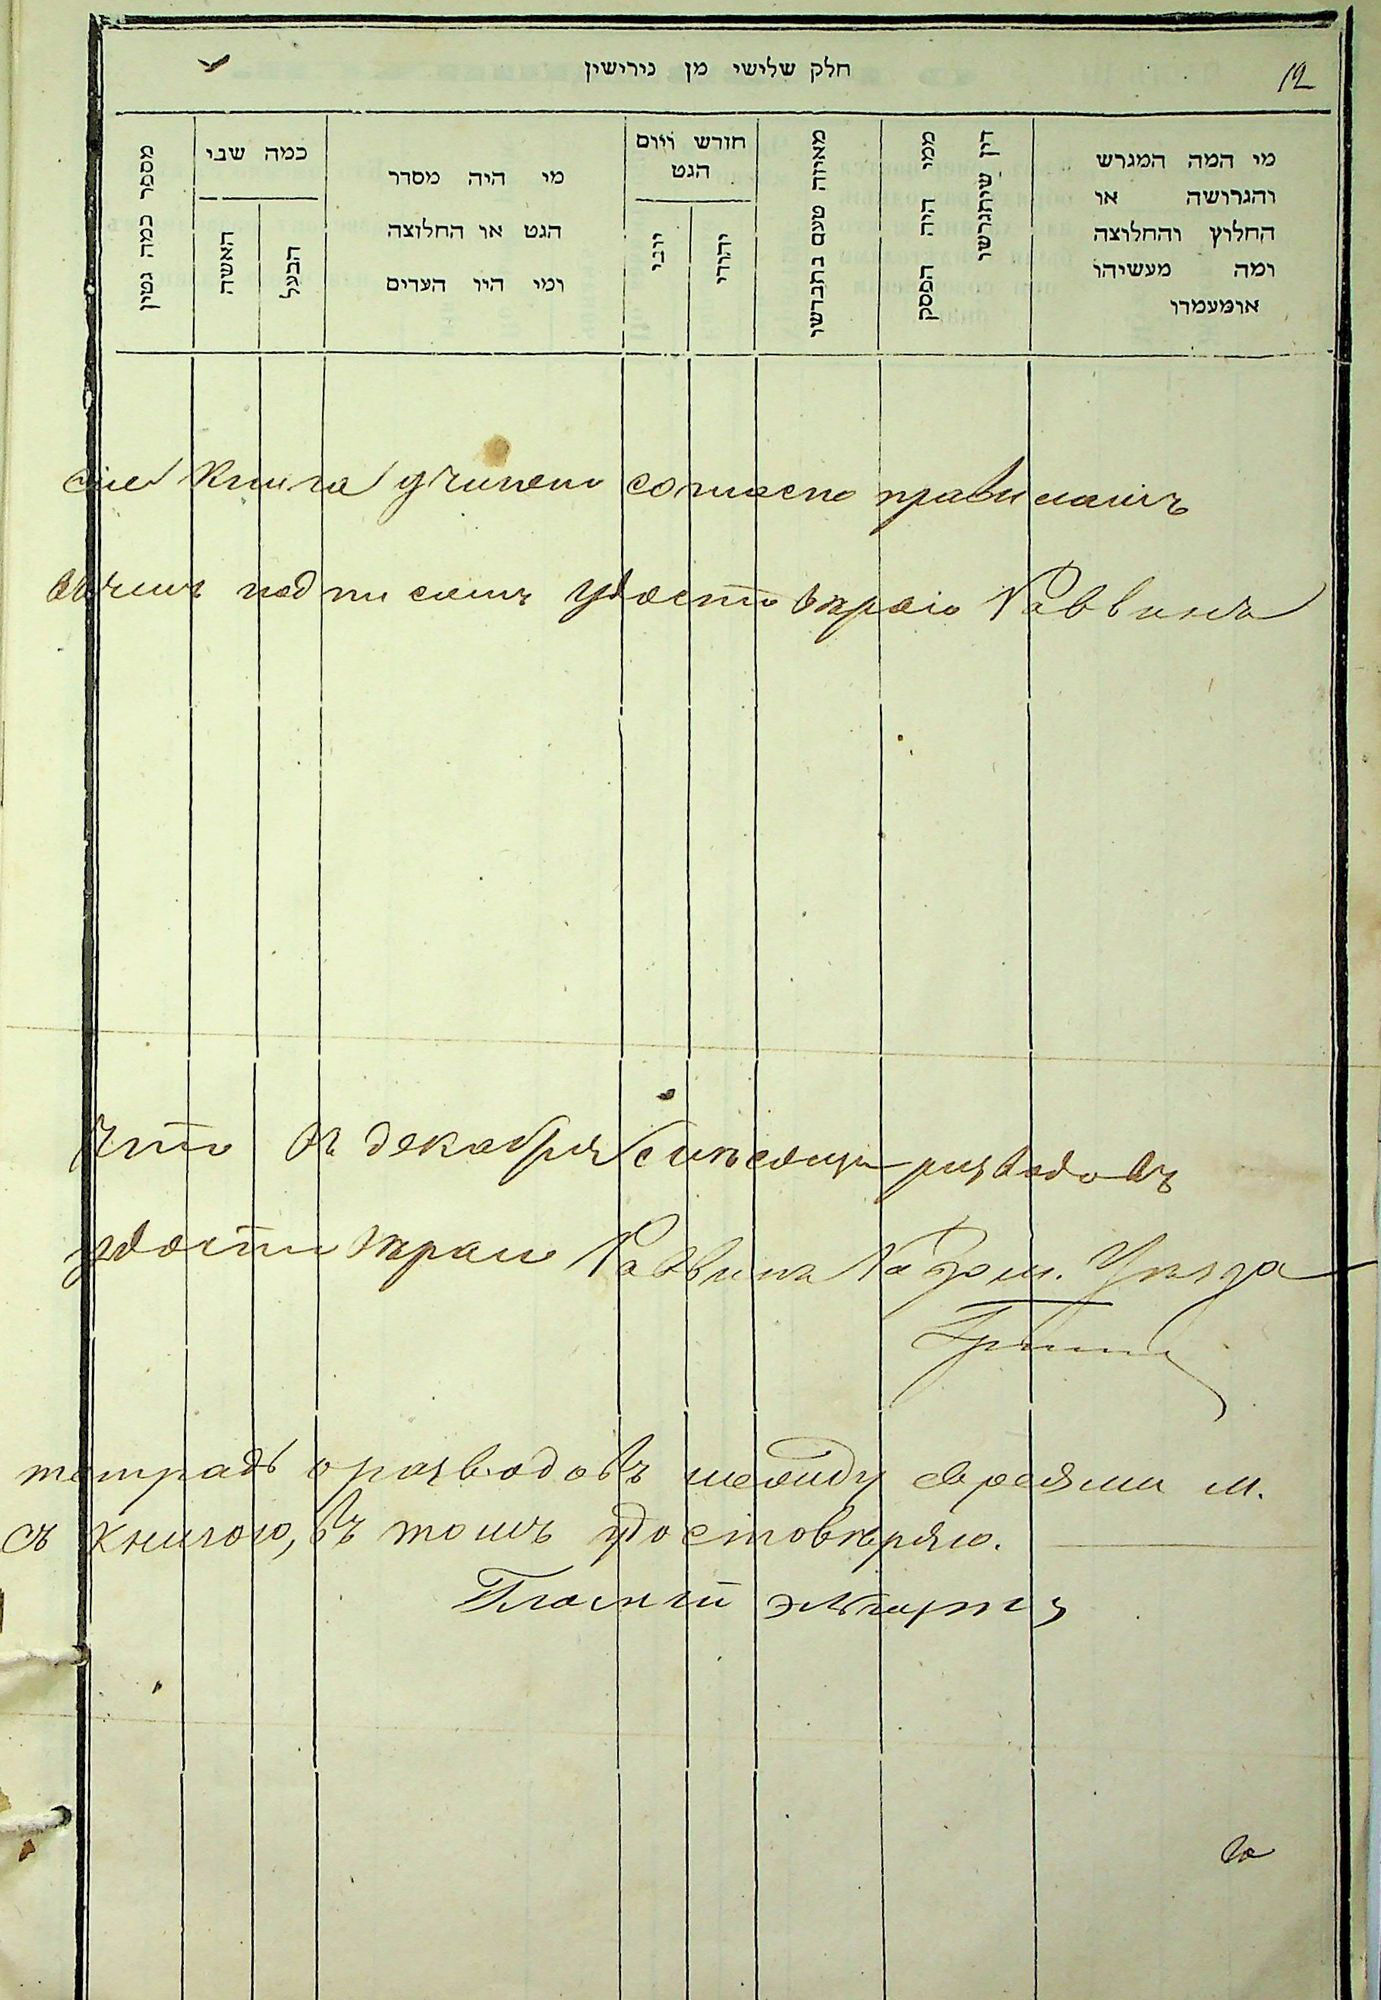 חלק שלישי מן גירושין
12
מי המה המגרש
והגרושה או
החלוץ והחלוצה
ומה מעשיהו
אומעמדו
דין שיתגרשו
ממי היה הפסק
מאיזה טעם נתגרשו
חודש ויום
הגט
יהודי
יוני
מי היה מסדר
הגט או החלוצה
ומי היו העדים
כמה שני
הבעל
האשה
מספר כמה גטין
сіе книга учинено согласно правиламъ
подписомъ удостовѣраю Раввинъ
что въ декабря разводовъ
удостовѣраю Раввинъ
тетрадь о разводовъ между евреями м.
съ книгою, въ томъ удостовѣряю.
Гласный